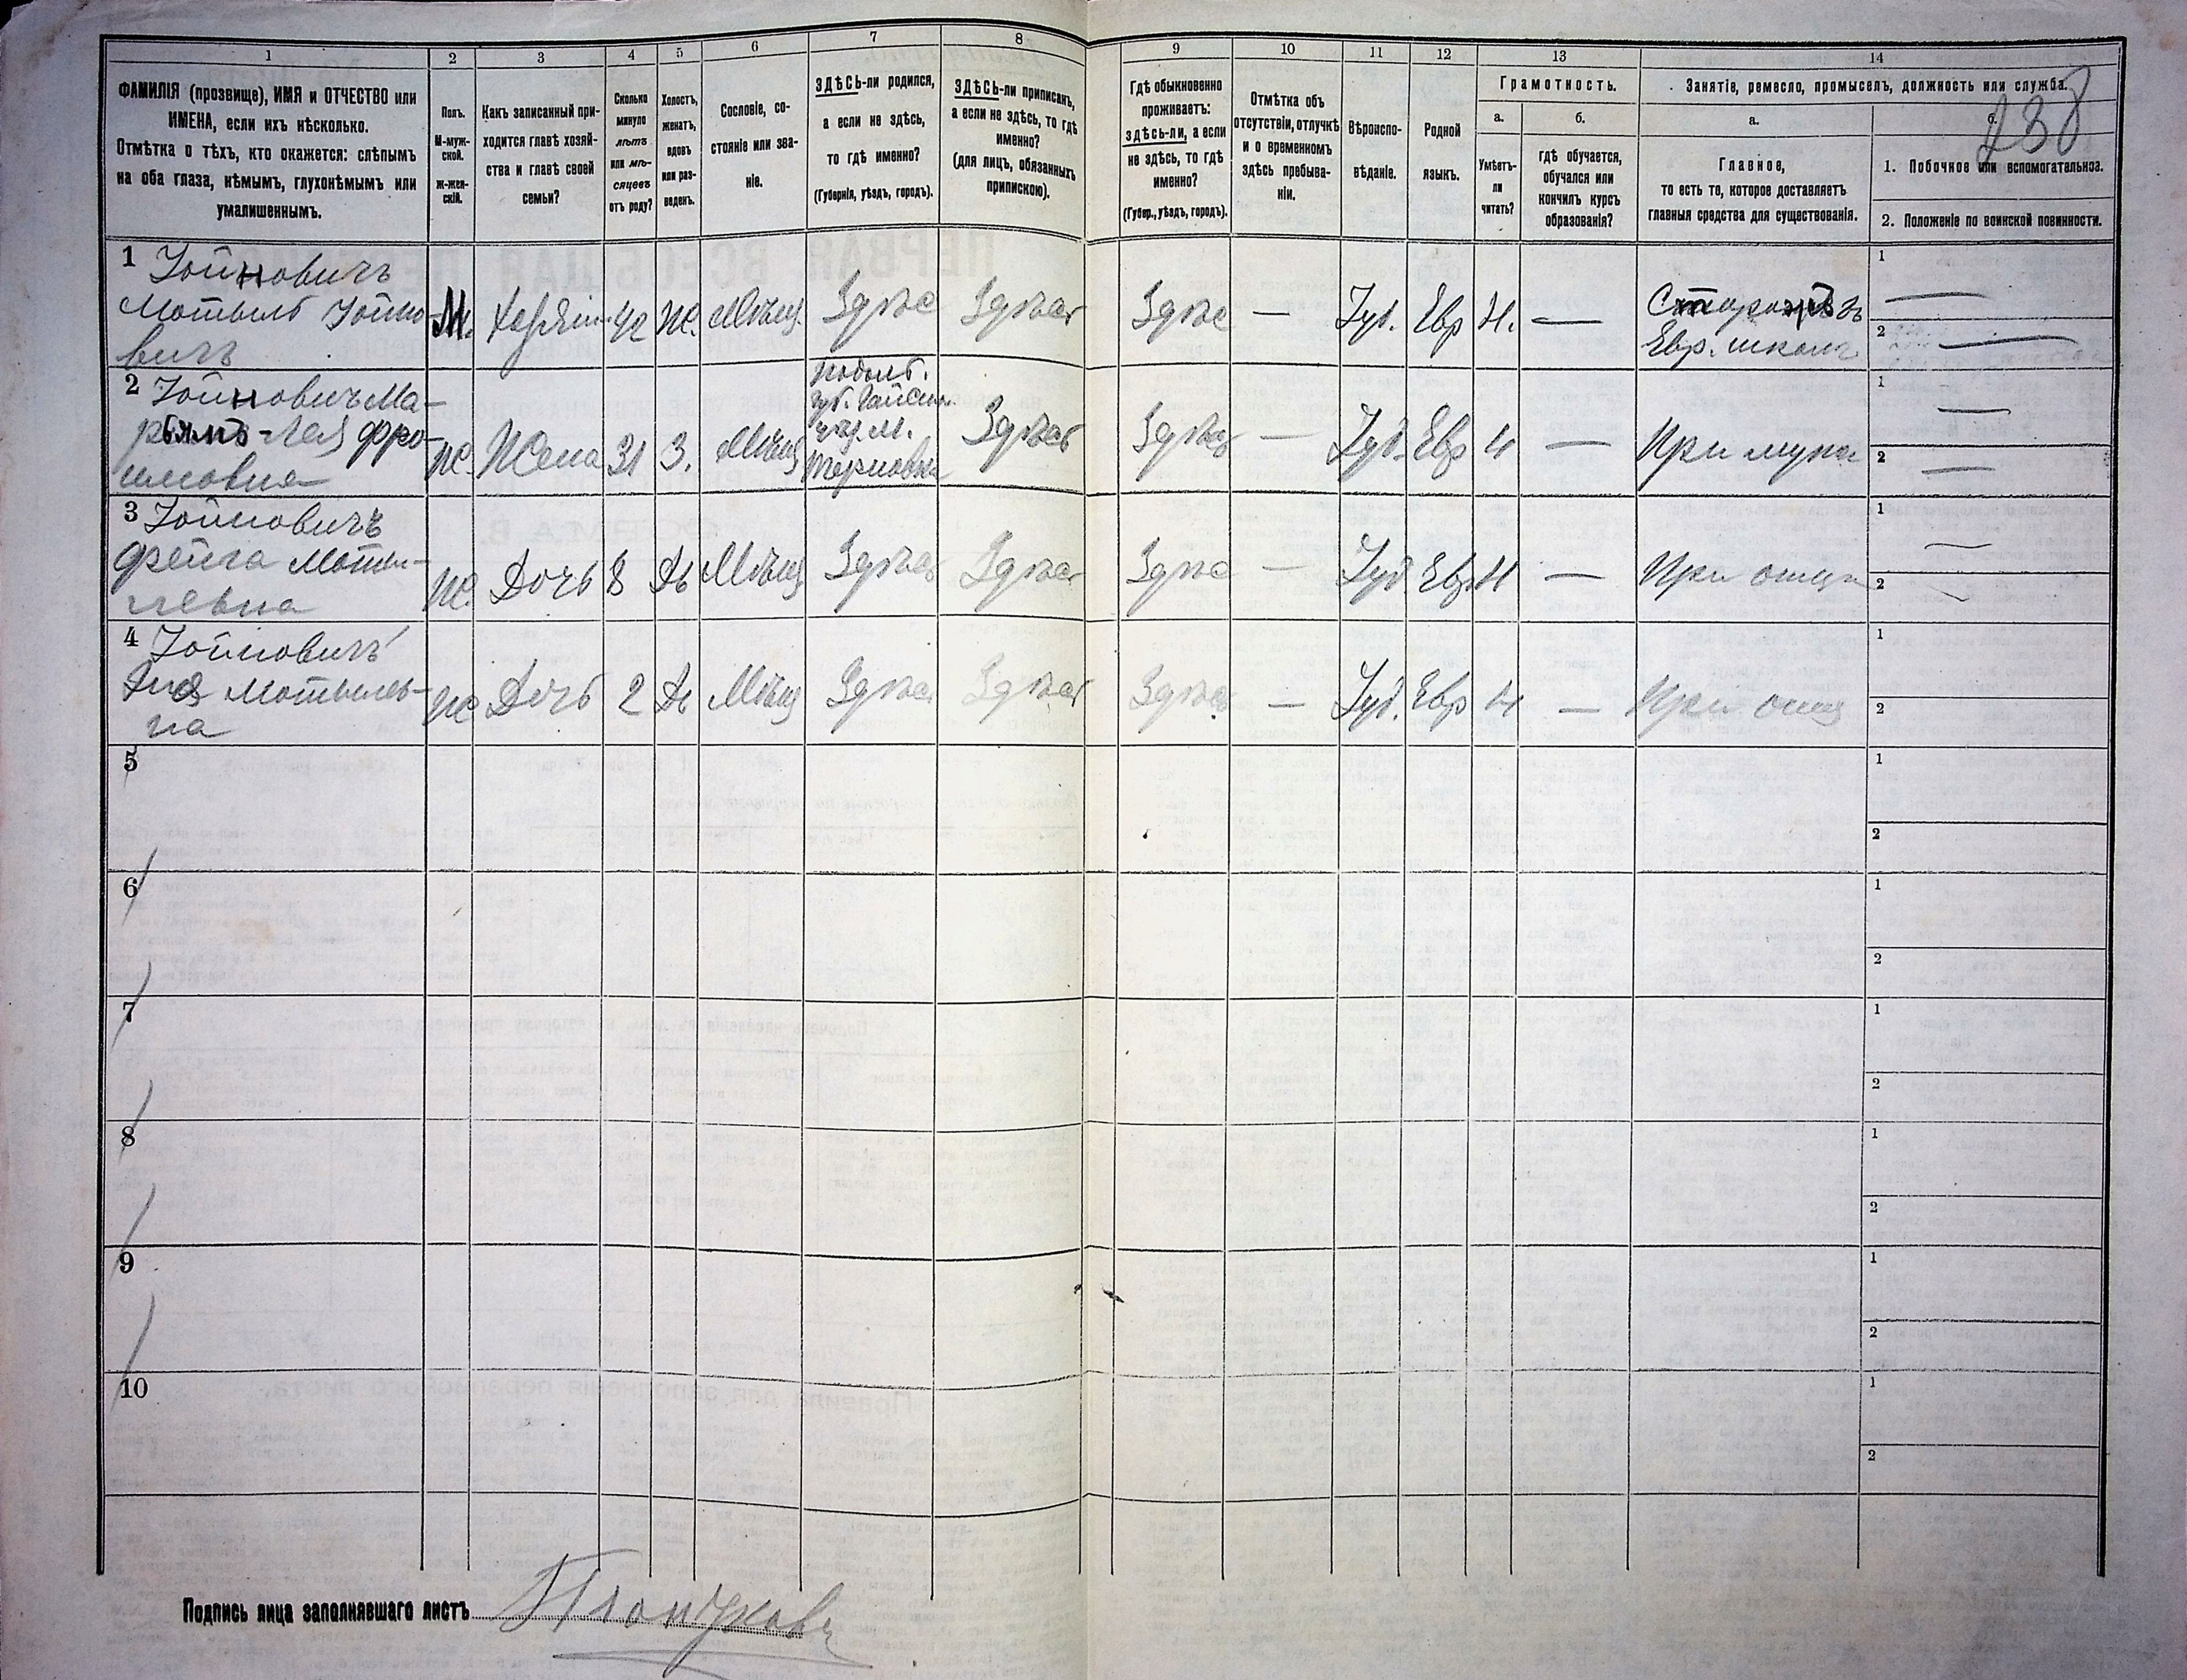 1 2 3 4 5 6 7 8 9 10 11 12 13 14
ФАМИЛІЯ (прозвище), ИМЯ и ОТЧЕСТВО или
ИМЕНА, если ихъ нѣсколько.
Отмѣтка о тѣхъ, кто окажется: слѣпымъ
на оба глаза, нѣмымъ, глухонѣмымъ или
умалишеннымъ.
Полъ.
М-муж-
ской.
Ж-жен-
скій.
Какъ записанный при-
ходится главѣ хозяй-
ства и главѣ своей
семьи?
Сколько
минуло
лѣтъ
или мѣ-
сяцевъ
отъ роду?
Холостъ,
женатъ,
вдовъ
или раз-
веденъ.
Сословіе, со-
стояніе или зва-
ніе.
ЗДѢСЬ-ли родился,
а если не здѣсь,
то гдѣ именно?
(Губернія, уѣздъ, городъ).
ЗДѢСЬ-ли приписанъ,
а если не здѣсь, то гдѣ
именно?
(для лицъ, обязанныхъ
припискою).
Гдѣ обыкновенно
проживаетъ:
здѣсь-ли, а если
не здѣсь, то гдѣ
именно?
(Губер., уѣздъ, городъ).
Отмѣтка объ
отсутствіи, отлучкѣ
и о временномъ
здѣсь пребыва-
ніи.
Вѣроиспо-
вѣданіе.
Родной
языкъ.
Грамотность.
а.
Умѣетъ-
ли
читать?
б.
гдѣ обучается,
обучался или
кончилъ курсъ
образованія?
Занятіе, ремесло, промыселъ, должность или служба.
а.
Главное,
то есть то, которое доставляетъ
главныя средства для существованія.
б.
238
1. Побочное или вспомогательное.
2. Положеніе по воинской повинности.
1 Іойновичъ
Мотыль Іойно-
вичъ
М. Хозяин 42 Ж. Мѣщ. Здѣсь Здѣсь Здѣсь — Іуд. Евр Н. — Сторожъ въ
Евр. школѣ
1 —
2 —
2 Іойновичъ Ма-
рьямъ-Лея Фро-
имовна
Ж Жена 31 З. Мѣщ
Подоль.
губ. Гайсин.
уѣз. м.
Терновка
Здѣсь Здѣсь — Іуд. Евр Н — При мужѣ
1 —
2 —
3 Іойновичъ
Фейга Моты-
левна
Ж. Дочь 8 Дѣ Мѣщ Здѣсь Здѣсь Здѣсь — Іуд Евр Н — При отцѣ
1 —
2 —
4 Іойновичъ
Мотылев-
на
Ж Дочь 2 Дѣ Мѣщ Здѣсь Здѣсь Здѣсь — Іуд. Евр Н — При отцѣ
1
2
5
1
2
6
1
2
7
1
2
8
1
2
9
1
2
10
1
2
Подпись лица заполнявшаго листъ